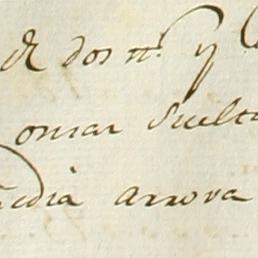 de dos rr.s y
onzas Suelta
media arrova